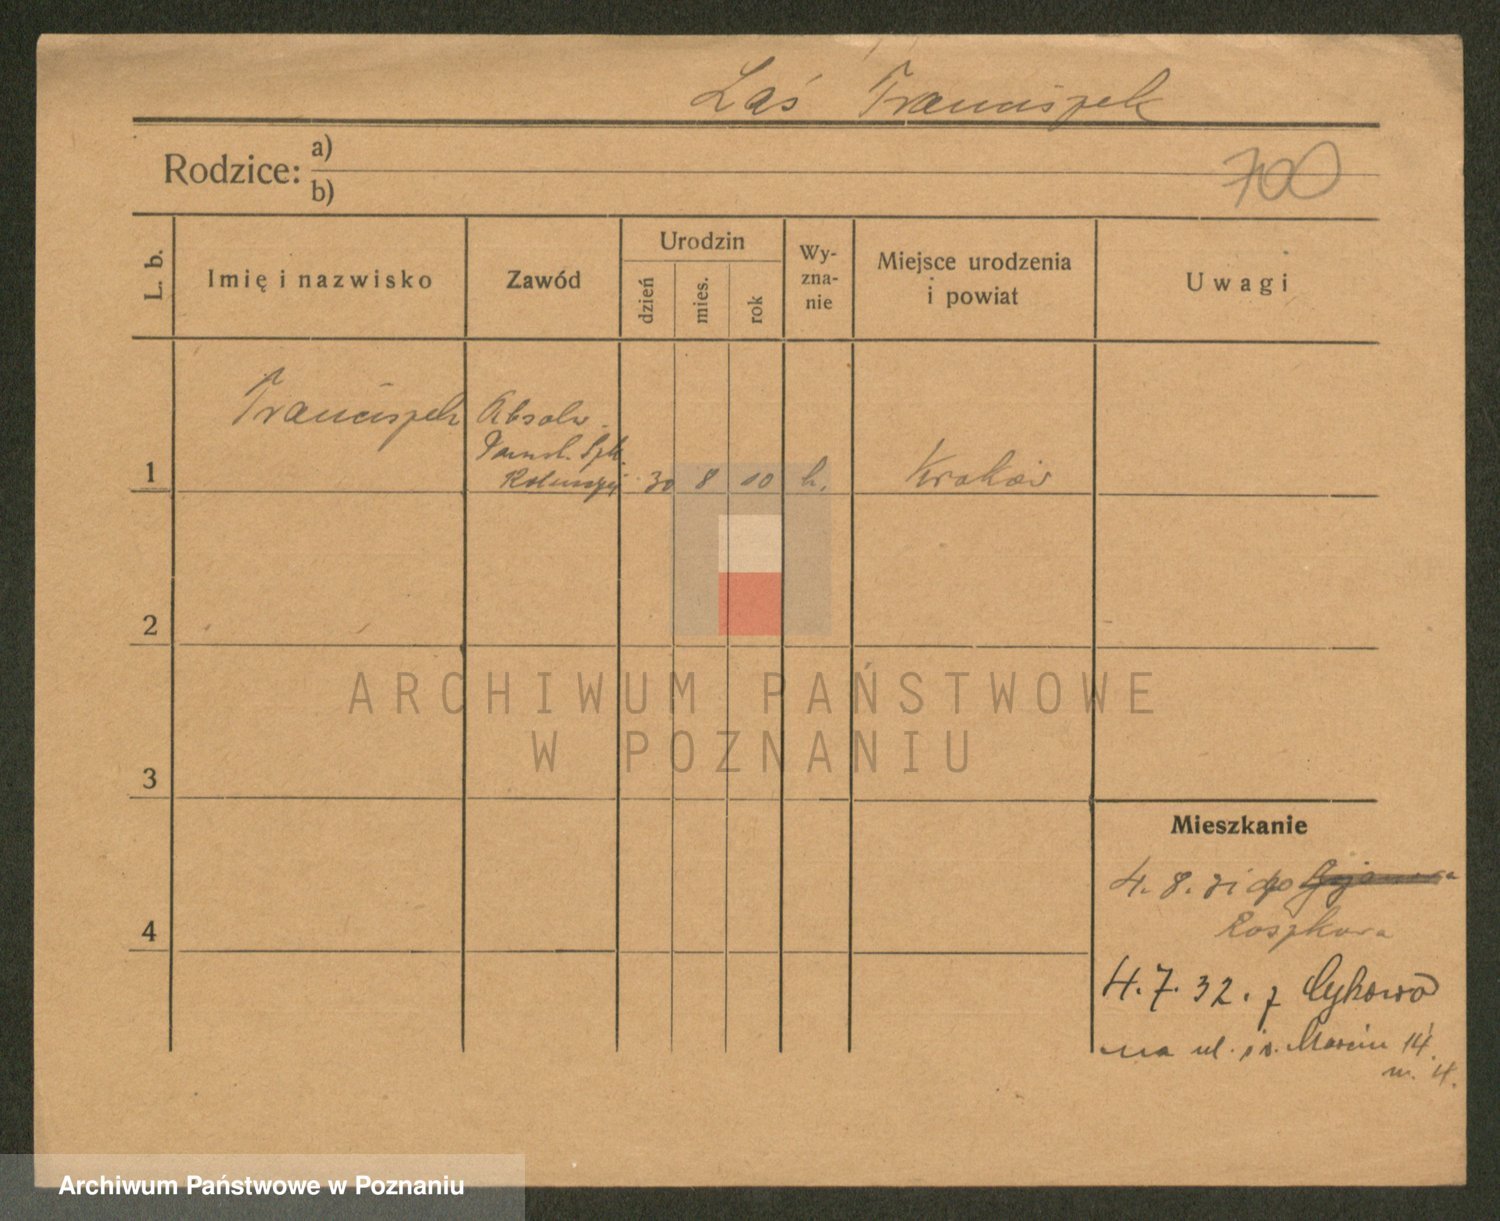 Laś Franciszek
Rodzice: a)
b)
700
L. b.
Imię i nazwisko
Zawód
Urodzin
dzień
mies.
rok
Wy-
zna-
nie
Miejsce urodzenia
i powiat
Uwagi
1
Franciszek
Absolw.
Państ. Szk.
30
8
10
Kraków
2
3
4
Mieszkanie
4. 8. 31 do
Roszkowa
4. 7. 32. z Cykowo
na ul. św. Marcin 14.
m. 4.
ARCHIWUM PAŃSTWOWE
W POZNANIU
Archiwum Państwowe w Poznaniu